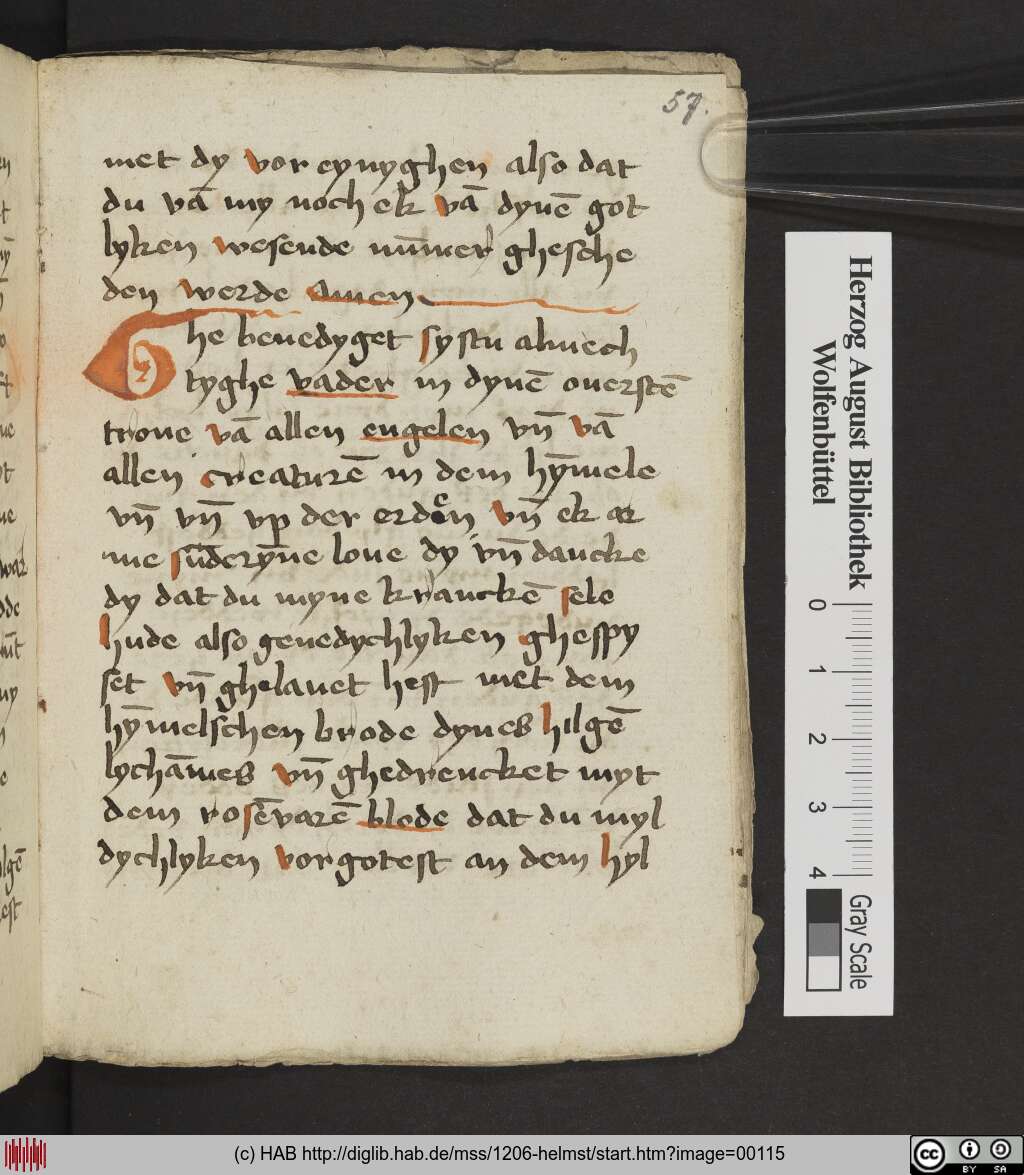 57.
met dy vor eynyghen also dat
du vā my noch ek vā dynē got
lyken wesende nūmer ghesche
den werde amen
Ghe benedyget systu almech
tyghe vader in dynē ouerstē
trone vā allen engelen vn̄ vā
allen creaturē in dem hȳmele
vn̄ vn̄ vp der erden vn̄ ek ar
me sūderȳne loue dy vn̄ dancke
dy dat du myne kranckē sele
hude also genedychlyken ghespy
set vn̄ ghelauet hest met dem
hȳmelschen brode dynes hilgē
lychāmes vn̄ ghedrencket myt
dem rosēvarē blode dat du myl
dychlyken vorgotest an dem hyl
Herzog August Bibliothek
Wolfenbüttel
0 1 2 3 4
Gray Scale
(c) HAB http://diglib.hab.de/mss/1206-helmst/start.htm?image=00115
cc BY SA